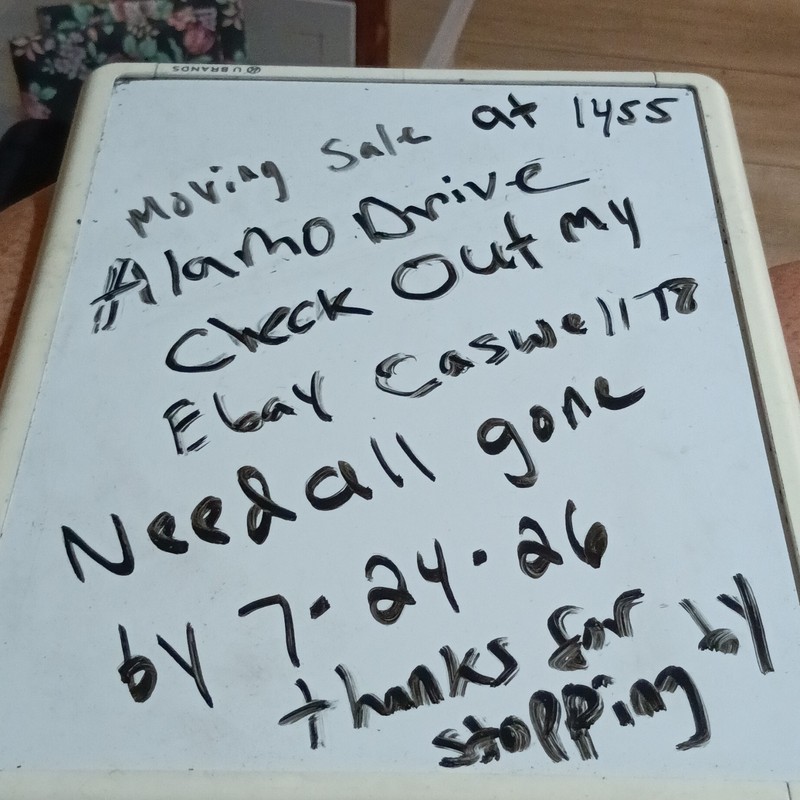 U BRANDS
Moving Sale at 1455
Alamo Drive
Check Out my
Ebay Caswell T8
Need all gone
by 7.24.26
thanks for
stopping by